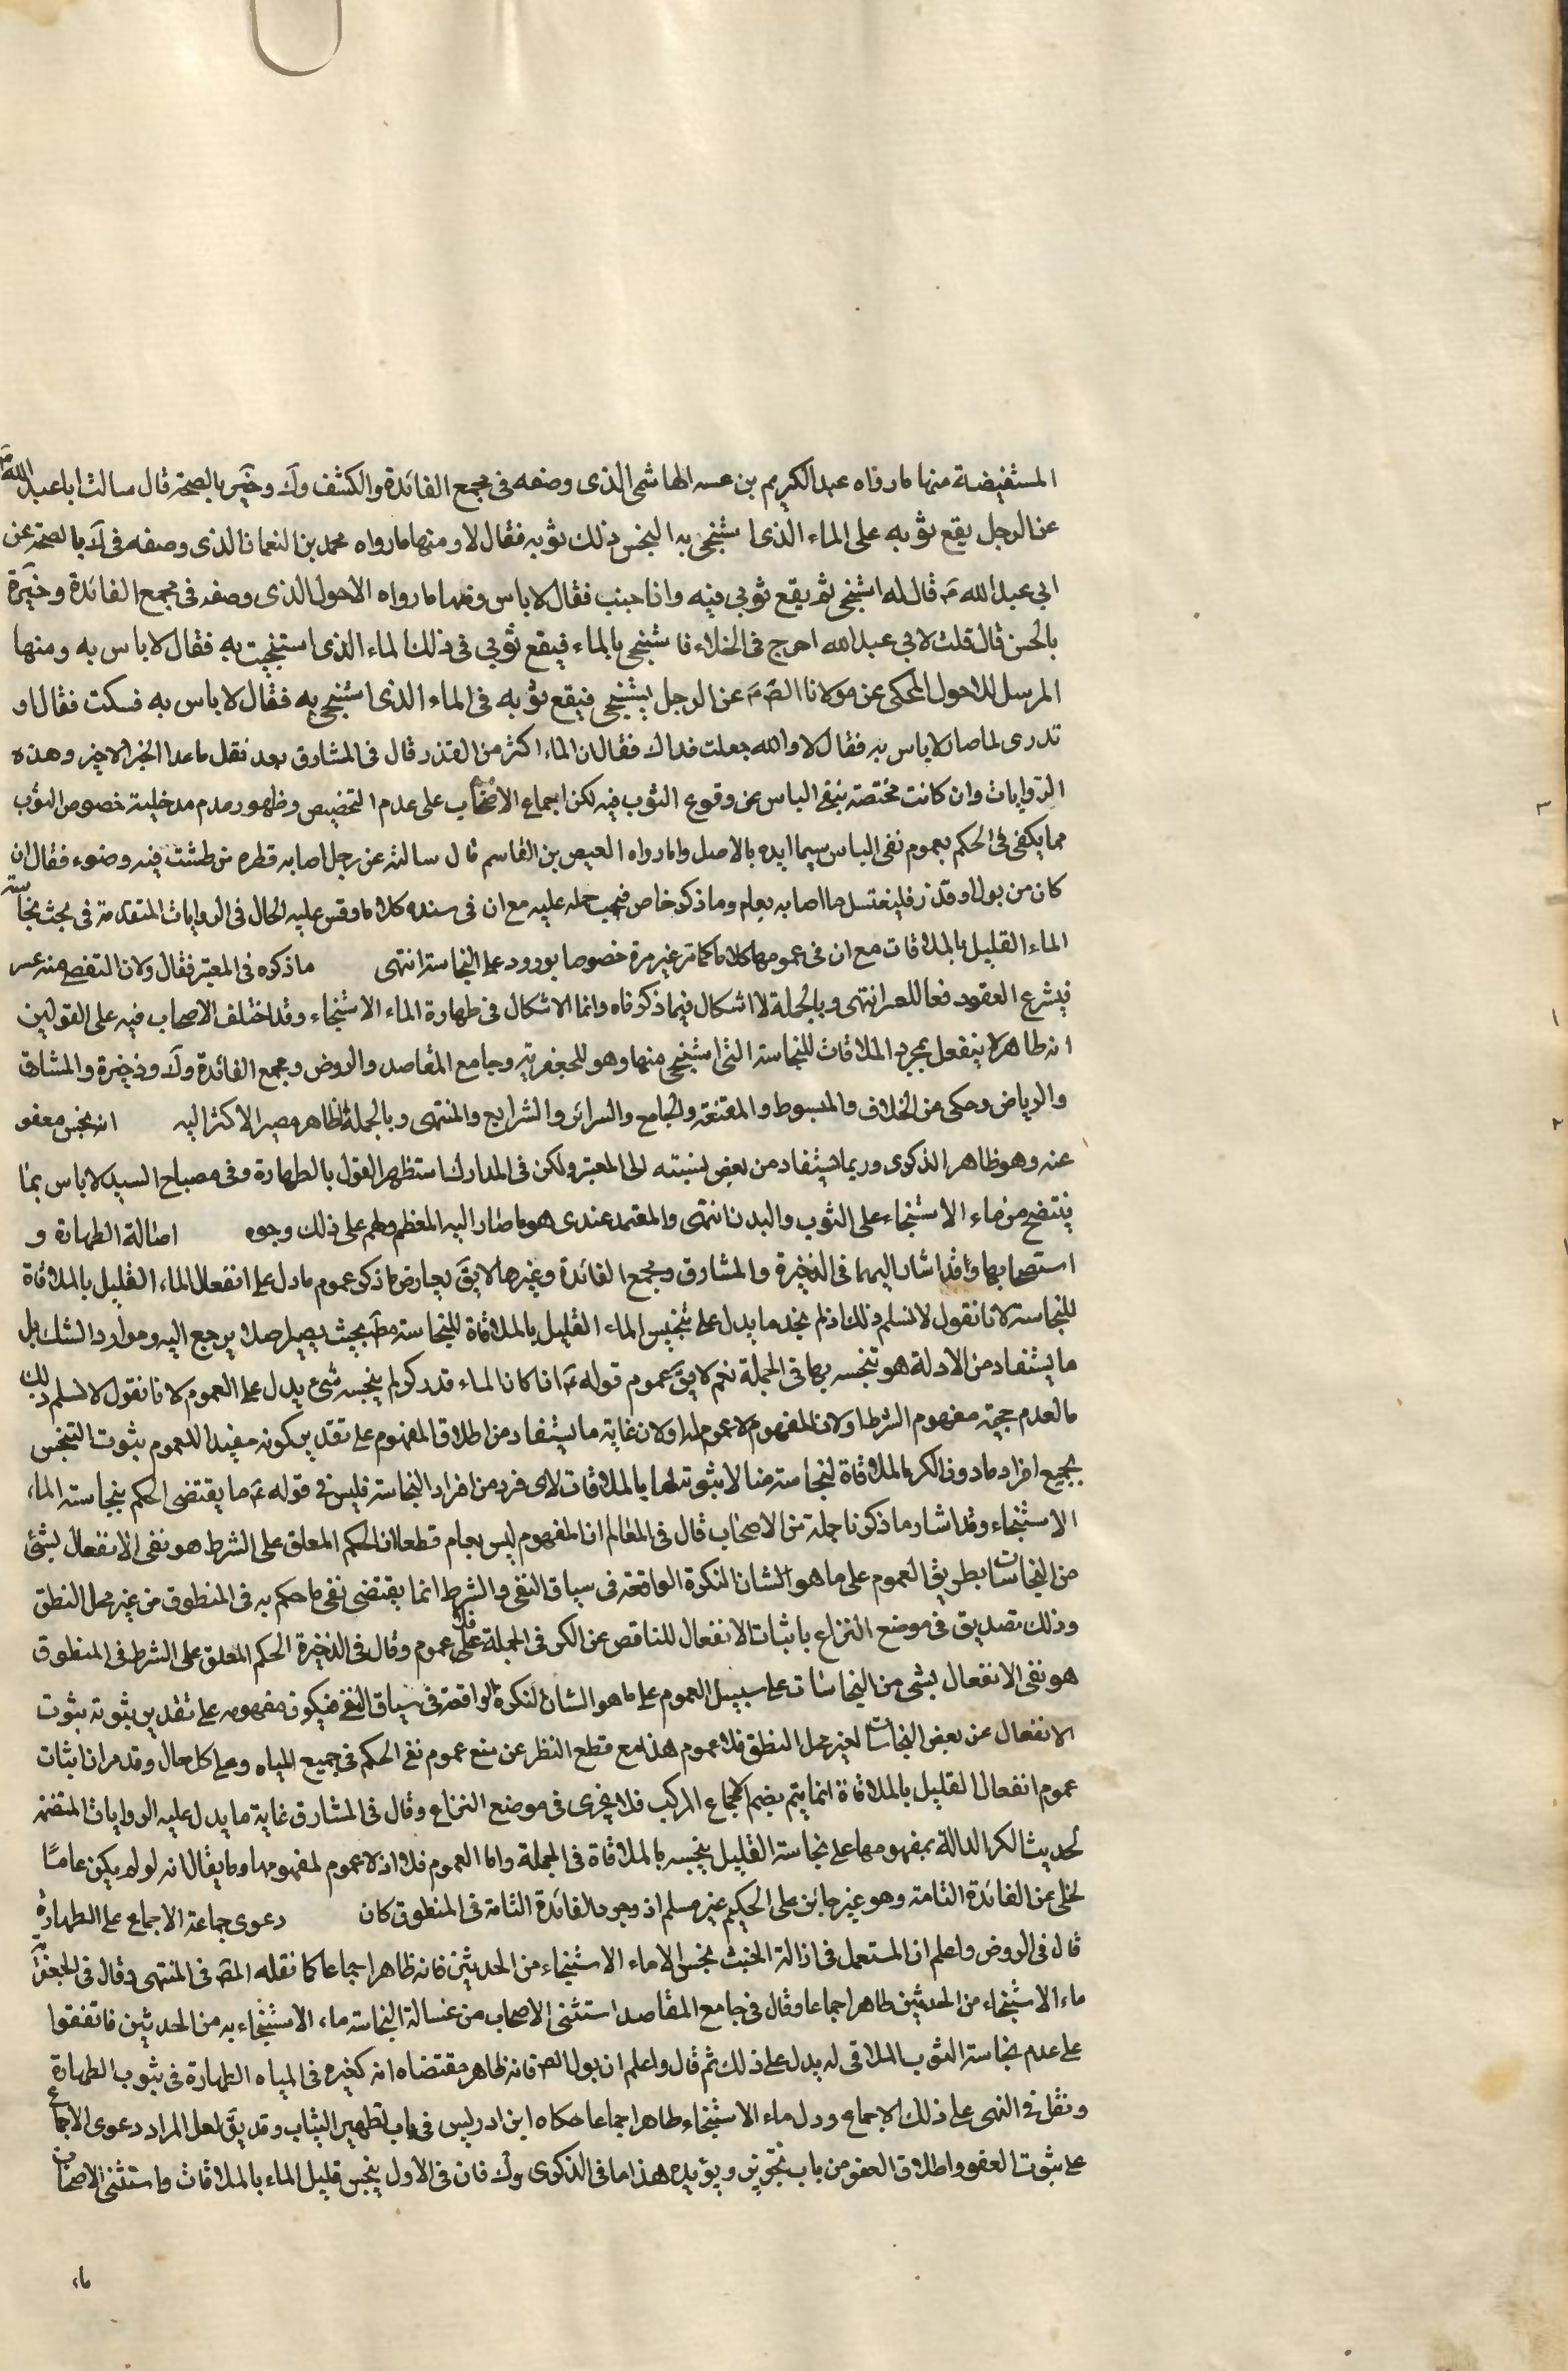 المستفيضة منها ما رواه عبد الكريم بن عسه الهاشمى الذى وصفه فى مجمع الفائدة والكشف وك وخيرة بالصحة قال سالت ابا عبد الله ع
عن الرجل يقع ثوبه على الماء الذى استنجى به الينجس ذلك ثوبه فقال لا ومنها ما رواه محمد بن النعمان الذى وصفه فى ك بالصحة عن
ابى عبد الله ع قال له استنجى ثم يقع ثوبى فيه وانا جنب فقال لا باس ومنها ما رواه الاحول الذى وصفه فى مجمع الفائدة وخيرة
بالحسن قال قلت لابى عبد الله اخرج فى الخلاء فاستنجى بالماء فيقع ثوبى فى ذلك الماء الذى استنجيت به فقال لا باس به ومنها
المرسل للاحول المحكى عن مولانا الص ع عن الرجل يستنجى فيقع ثوبه فى الماء الذى استنجى به فقال لا باس به فسكت فقال او
تدرى لما صار لا باس به فقال لا والله جعلت فداك فقال ان الماء اكثر من القذر قال فى المشارق بعد نقل ما عدا الخبر الاخير وهذه
الروايات وان كانت مختصة بنفى الباس عن وقوع الثوب فيه لكن اجماع الاصحاب على عدم التخصيص وظهور عدم مدخلية خصوص الثوب
مما يكفى فى الحكم بعموم نفى الباس سيما ايده بالاصل واما رواه العيص بن القاسم قال سالته عن رجل اصابه قطرة من طشت فيه وضوء فقال ان
كان من بول او قذر فليغتسل ما اصابه بعام وما ذكر خاص فيجب حمله عليه مع ان فى سنده كلاما وقس عليه الحال فى الروايات المتقدمة فى بحث نجاسته
الماء القليل بالملاقات مع ان فى عمومها كلاما كما مر غير مرة خصوصا بورود على النجاسة انتهى ما ذكره فى المعتبر فقال ولان التفصى منه عسر
فيشرع العفو دفعا للعسر انتهى وبالجملة لا اشكال فيما ذكرناه وانما الاشكال فى طهارة الماء الاستنجاء وقد اختلف الاصحاب فيه على القولين
انه طاهر لا ينفعل بمجرد الملاقات للنجاسة التى استنجى منها وهو للجعفرية وجامع المقاصد والروض ومجمع الفائدة وك وذخيرة والمشارق
والرياض وحكى من الخلاف والمبسوط والمقنعة والجامع والسرائر والشرايع والمنتهى وبالجملة الظاهر مصير الاكثر اليه انه نجس معفو
عنه وهو ظاهر الذكرى وربما يستفاد من بعض نسبته الى المعتبر ولكن فى المدارك استظهر القول بالطهارة وفى مصباح السيد لا باس بما
ينتضح من ماء الاستنجاء على الثوب والبدن انتهى والمعتمد عندى هو ما صار اليه المعظم ولهم على ذلك وجوه اصالة الطهارة و
استصحابها وقد اشار اليهما فى الذخيرة والمشارق ومجمع الفائدة وغيرها لايق يعارض ما ذكر عموم ما دل على انفعال الماء القليل بالملاقاة
للنجاسة لانا نقول لا نسلم ذلك اذ لم نجد ما يدل على تنجيس الماء القليل بالملاقاة للنجاسة مط بحيث يصير اصلا يرجع اليه وموارد الشك بل
ما يستفاد من الادلة هو تنجسه بها فى الجملة نعم لايق عموم قوله ع اذا كان الماء قدر كر لم ينجسه شىء يدل على العموم لانا نقول لا نسلم ذلك
ما لعدم حجية مفهوم الشرط او لان المفهوم لا عموم له او لان غاية ما يستفاد من اطلاق المفهوم على تقدير كونه مفيدا للعموم ثبوت التنجس
بجميع افراد ما دون الكر بالملاقاة لنجاسة ما لا ثبوته لها بالملاقات لاى فرد من افراد النجاسة فليس فى قوله ع ما يقتضى الحكم بنجاسة الماء
الاستنجاء وقد اشار ما ذكرنا جملة من الاصحاب قال فى المعالم ان المفهوم ليس بعام قطعا ان الحكم المعلق على الشرط هو نفى الانفعال بشئ
من النجاسات بطريق العموم على ما هو الشان النكرة الواقعة فى سياق النفى والشرط انما يقتضى نفى ما حكم به فى المنطوق من غير محل النطق
وذلك تصديق فى موضع النزاع باثبات الانفعال للناقص عن الكر فى الجملة على عموم وقال فى الذخيرة الحكم المعلق على الشرط فى المنطوق
هو نفى الانفعال بشى من النجاسات على سبيل العموم على ما هو الشان النكرة الواقعة فى سياق النفى فيكون مفهومه على تقدير ثبوته ثبوت
الانفعال عن بعض النجاسات لغير محل النطق فلا عموم هذا مع قطع النظر عن منع عموم نفى الحكم فى جميع المياه وعلى كل حال وقد مر ان اثبات
عموم انفعال القليل بالملاقاة انما يتم بضم الاجماع المركب فلا يجرى فى موضع النزاع وقال فى المشارق غاية ما يدل عليه الروايات المتضمنة
لحديث الكر الدالة بمفهومها على نجاسة القليل ينجسه بالملاقاة فى الجملة واما العموم فلا اذ لا عموم لمفهومها وما يقال انه لو لم يكن عاما
لخلى عن الفائدة التامة وهو غير جائز على الحكيم غير مسلم اذ وجود الفائدة التامة فى المنطوق كان دعوى جماعة الاجماع على الطهارة
قال فى الروض واعلم ان المستعمل فى ازالة الخبث نجس الا ماء الاستنجاء من الحدثين فانه ظاهر اجماعا كما نقله المص فى المنتهى وقال فى الجعفرية
ماء الاستنجاء من الحدثين طاهر اجماعا وقال فى جامع المقاصد استثنى الاصحاب من غسالة النجاسة ماء الاستنجاء به من الحدثين فاتفقوا
على عدم نجاسة الثوب الملاقى له يدل على ذلك ثم قال واعلم ان بول المص فانه ظاهر مقتضاه انه كغيره فى المياه الطهارة فى ثبوت الطهارة
ونقل فى النهى على ذلك الاجماع ودل ماء الاستنجاء طاهر اجماعا حكاه ابن ادريس فى باب تطهير الثياب وقد يق لعل المراد دعوى الاجماع
على ثبوت العفو واطلاق العفو من باب تجوزين ويؤيده هذا ما فى الذكرى وك فان فى الاول ينجس قليل الماء بالملاقات واستثنى الاصحاب
ماء